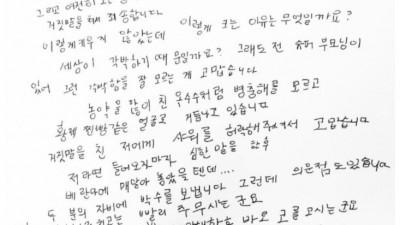 그리고 여전히
거짓말을 해 죄송합니다
이렇게 크는 이유는 무엇일까요?
이렇게 키우지 않았는데
세상이 각박하기 때문일까요? 그래도 전 슈퍼 부모님이
있어 그런 각박함을 잘 모르는 게 고맙습니다
농약을 많이 친 옥수수처럼 병충해를 모르고
황제 찐빵같은 얼굴로 거듭나고 있습니다
거짓말을 친 저에게 샤워를 허락해주셔서 고맙습니다
저라면 들어오자마자 심한 말을 한 후
베란다에 매달아 놓았을텐데....
두 분의 자비에 박수를 보냅니다 그런데 의문점도 있습니다
빨리 주무시는군요
바로 코를 고시는군요